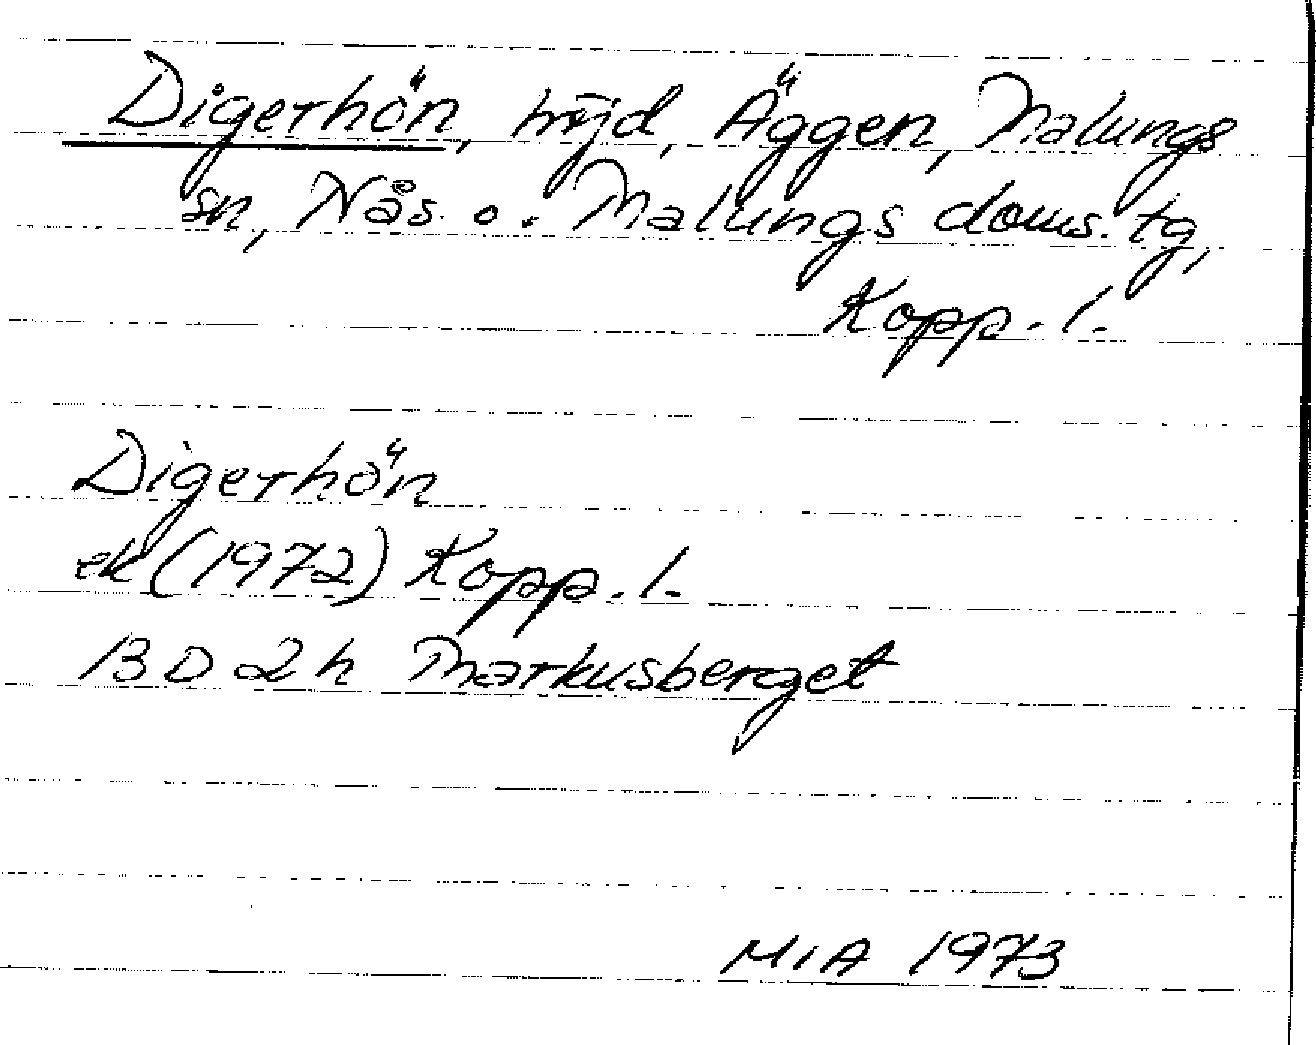 Digerhön, höjd, Äggen, Malungs
sn, Nås. o. Malungs doms. tg,
Kopp. l.
Digerhön
ek (1972) Kopp. l.
13 D 2h Markusberget
MIA 1973